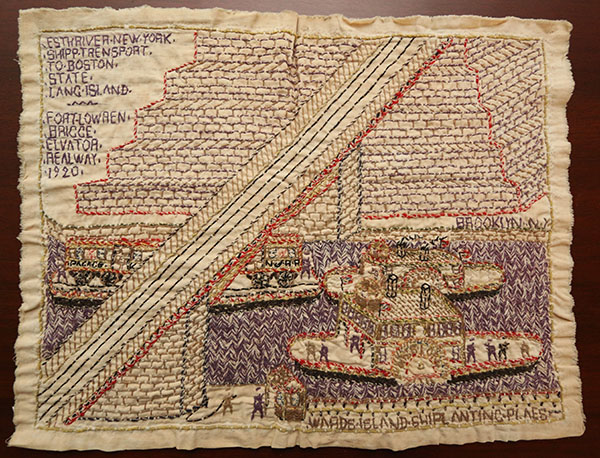 ESTHRIVER·NEW·YORK.
SHIPP·TRENSPORT.
TO·BOSTON.
STATE.
LANG·ISLAND.
FORT·LOWREN.
BRIGGE.
ELVATOR.
REALWAY.
1920.
BROOKLYN.N.Y.
WARDS·ISLAND·SHIPLANTING·PLAES.